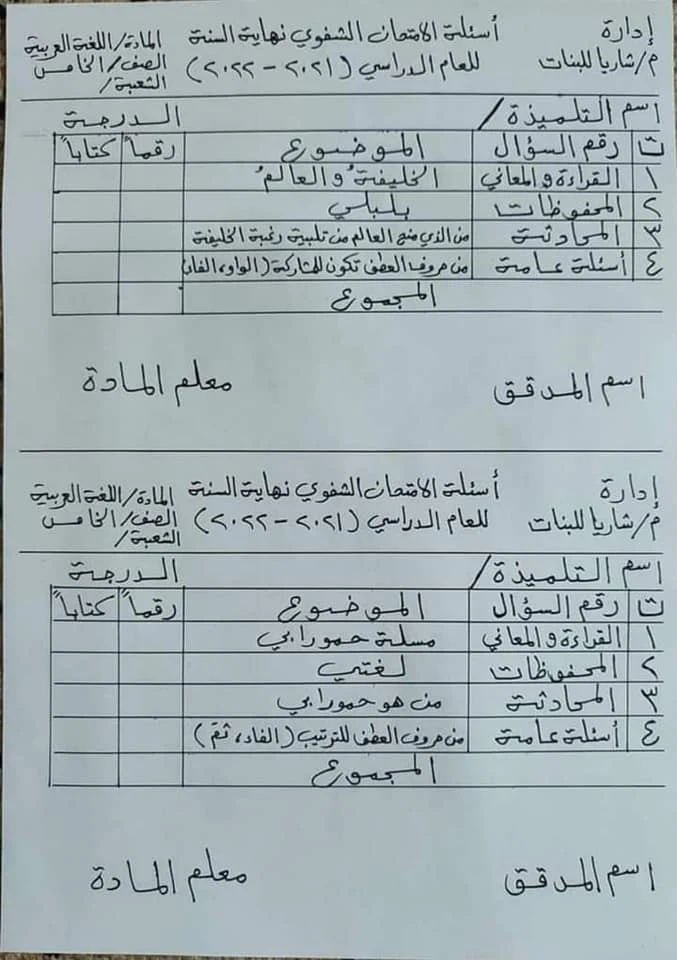 إدارة أسئلة الامتحان الشفوي نهاية السنة المادة/اللغة العربية
م/شاريا للبنات للعام الدراسي (٢٠٢١ - ٢٠٢٢) الصف/الخامس
الشعبة/
اسم التلميذة/ الدرجة
ت رقم السؤال الموضوع رقماً كتاباً
١ القراءة والمعاني الخليفةُ والعالمُ
٢ المحفوظات بلبلي
٣ المحادثة من الذي منع العالم من تلبية رغبة الخليفة
٤ أسئلة عامة من حروف العطف تكون للمشاركة (الواو، الفاء)
المجموع
اسم المدقق معلم المادة
إدارة أسئلة الامتحان الشفوي نهاية السنة المادة/اللغة العربية
م/شاريا للبنات للعام الدراسي (٢٠٢١ - ٢٠٢٢) الصف/الخامس
الشعبة/
اسم التلميذة/ الدرجة
ت رقم السؤال الموضوع رقماً كتاباً
١ القراءة والمعاني مسلة حمورابي
٢ المحفوظات لغتي
٣ المحادثة من هو حمورابي
٤ أسئلة عامة من حروف العطف للترتيب (الفاء، ثمّ)
المجموع
اسم المدقق معلم المادة